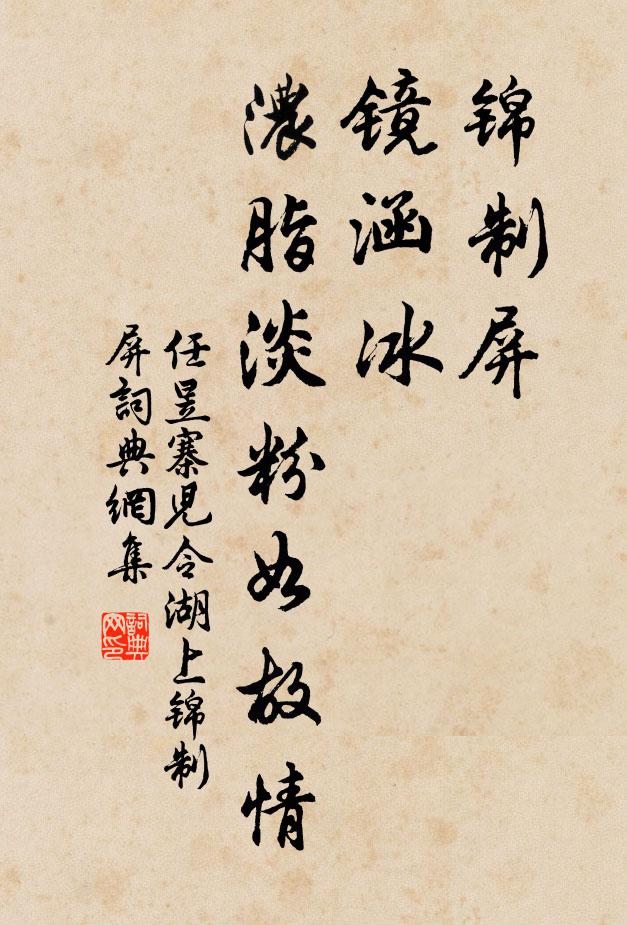 锦制屏
镜涵冰
濃脂淡粉如故情
任昱寨児令湖上锦制
屏詞典網集
詞典网印